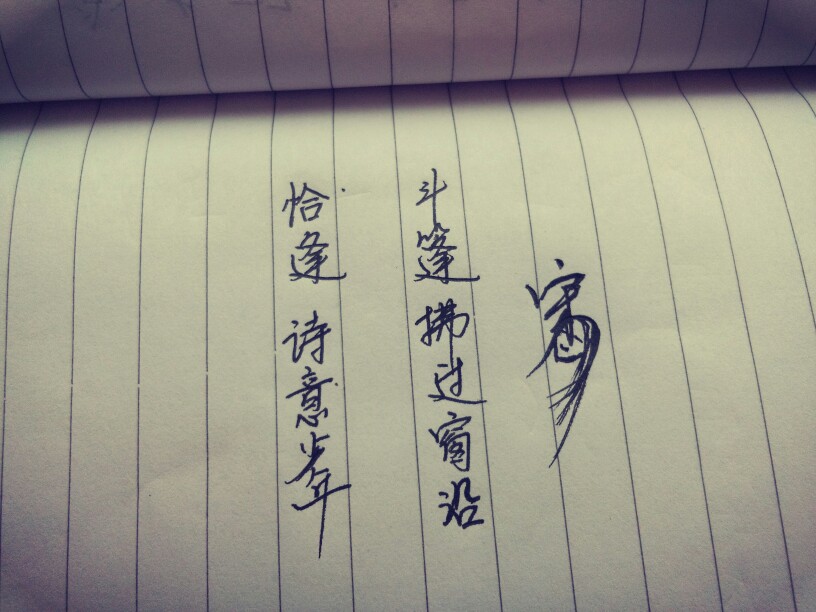 斗篷拂过窗沿
恰逢 诗意少年